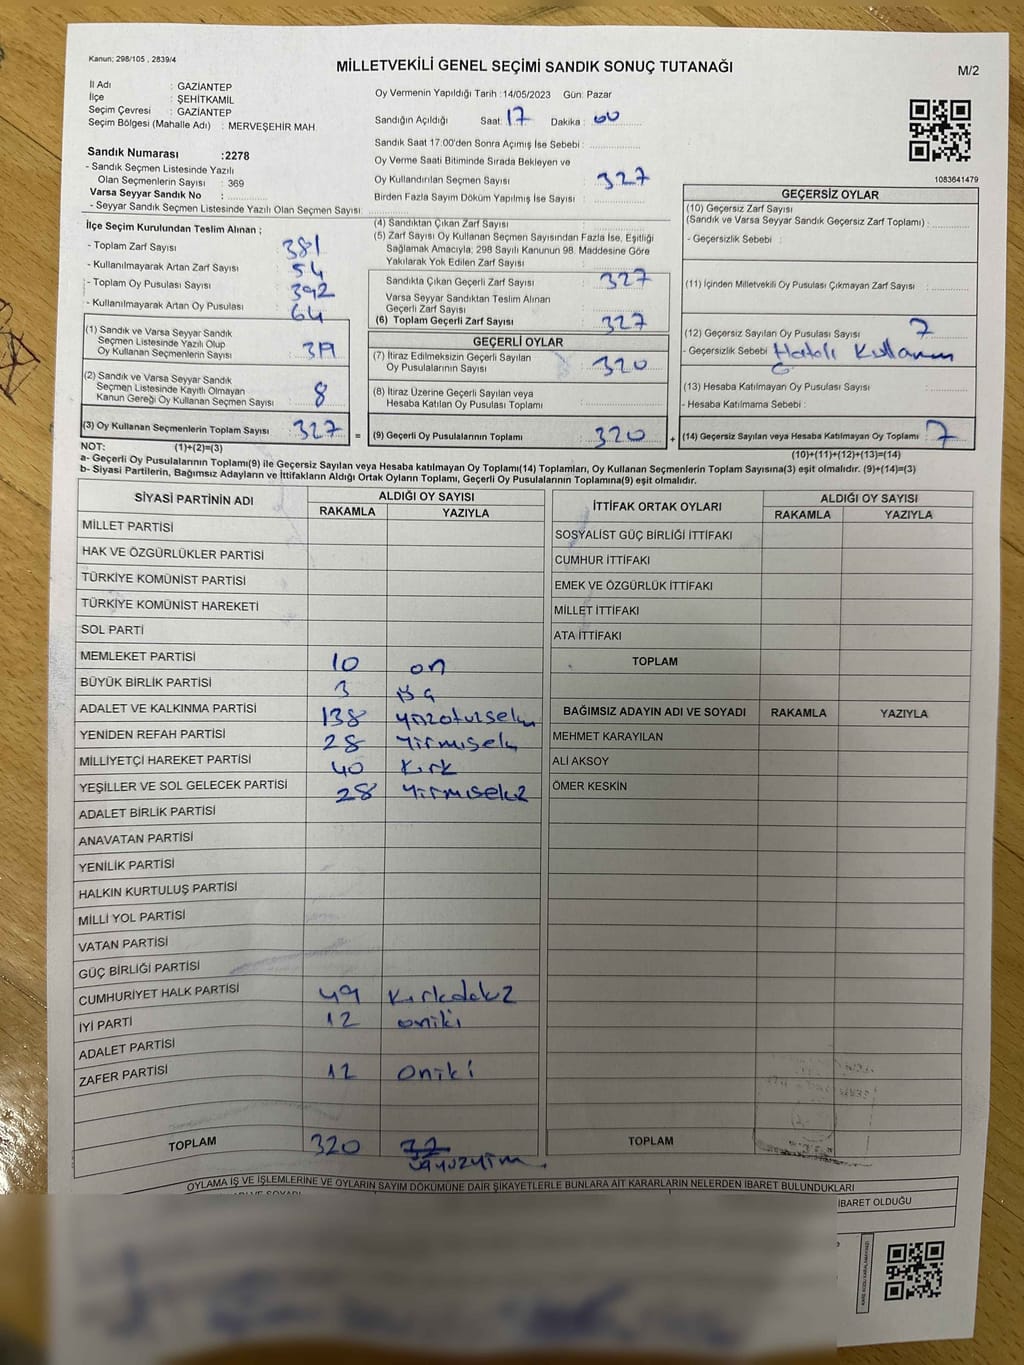 Kanun: 298/105 , 2839/4
MİLLETVEKİLİ GENEL SEÇİMİ SANDIK SONUÇ TUTANAĞI
M/2
İl Adı : GAZİANTEP
İlçe : ŞEHİTKAMİL
Seçim Çevresi : GAZİANTEP
Seçim Bölgesi (Mahalle Adı) : MERVEŞEHİR MAH
Sandık Numarası :2278
- Sandık Seçmen Listesinde Yazılı
Olan Seçmenlerin Sayısı : 369
Varsa Seyyar Sandık No :
- Seyyar Sandık Seçmen Listesinde Yazılı Olan Seçmen Sayısı:
Oy Vermenin Yapıldığı Tarih :14/05/2023 Gün: Pazar
Sandığın Açıldığı Saat: 17 Dakika: 00
Sandık Saat 17.00'den Sonra Açımış İse Sebebi :
Oy Verme Saati Bitiminde Sırada Bekleyen ve
Oy Kullandırılan Seçmen Sayısı : 327
Birden Fazla Sayım Döküm Yapılmış İse Sayısı :
1083641479
İlçe Seçim Kurulundan Teslim Alınan ;
- Toplam Zarf Sayısı : 381
- Kullanılmayarak Artan Zarf Sayısı : 54
- Toplam Oy Pusulası Sayısı : 392
- Kullanılmayarak Artan Oy Pusulası : 64
(1) Sandık ve Varsa Seyyar Sandık
Seçmen Listesinde Yazılı Olup
Oy Kullanan Seçmenlerin Sayısı : 319
(2) Sandık ve Varsa Seyyar Sandık
Seçmen Listesinde Kayıtlı Olmayan
Kanun Gereği Oy Kullanan Seçmen Sayısı : 8
(3) Oy Kullanan Seçmenlerin Toplam Sayısı : 327 =
(4) Sandıktan Çıkan Zarf Sayısı :
(5) Zarf Sayısı Oy Kullanan Seçmen Sayısından Fazla İse, Eşitliği
Sağlamak Amacıyla; 298 Sayılı Kanunun 98. Maddesine Göre
Yakılarak Yok Edilen Zarf Sayısı :
Sandıkta Çıkan Geçerli Zarf Sayısı : 327
Varsa Seyyar Sandıktan Teslim Alınan
Geçerli Zarf Sayısı :
(6) Toplam Geçerli Zarf Sayısı : 327
GEÇERLİ OYLAR
(7) İtiraz Edilmeksizin Geçerli Sayılan
Oy Pusulalarının Sayısı : 320
(8) İtiraz Üzerine Geçerli Sayılan veya
Hesaba Katılan Oy Pusulası Toplamı :
(9) Geçerli Oy Pusulalarının Toplamı : 320 +
GEÇERSİZ OYLAR
(10) Geçersiz Zarf Sayısı
(Sandık ve Varsa Seyyar Sandık Geçersiz Zarf Toplamı) :
- Geçersizlik Sebebi :
(11) İçinden Milletvekili Oy Pusulası Çıkmayan Zarf Sayısı :
(12) Geçersiz Sayılan Oy Pusulası Sayısı : 7
- Geçersizlik Sebebi : Hatalı Kullanım
(13) Hesaba Katılmayan Oy Pusulası Sayısı :
- Hesaba Katılmama Sebebi :
(14) Geçersiz Sayılan veya Hesaba Katılmayan Oy Toplamı : 7
NOT: (1)+(2)=(3)
(10)+(11)+(12)+(13)=(14)
a- Geçerli Oy Pusulalarının Toplamı(9) ile Geçersiz Sayılan veya Hesaba katılmayan Oy Toplamı(14) Toplamları, Oy Kullanan Seçmenlerin Toplam Sayısına(3) eşit olmalıdır. (9)+(14)=(3)
b- Siyasi Partilerin, Bağımsız Adayların ve İttifakların Aldığı Ortak Oyların Toplamı, Geçerli Oy Pusulalarının Toplamına(9) eşit olmalıdır.
SİYASİ PARTİNİN ADI
ALDIĞI OY SAYISI
RAKAMLA YAZIYLA
MİLLET PARTİSİ
HAK VE ÖZGÜRLÜKLER PARTİSİ
TÜRKİYE KOMÜNİST PARTİSİ
TÜRKİYE KOMÜNİST HAREKETİ
SOL PARTİ
MEMLEKET PARTİSİ 10 on
BÜYÜK BİRLİK PARTİSİ 3
ADALET VE KALKINMA PARTİSİ 138
YENİDEN REFAH PARTİSİ 28
MİLLİYETÇİ HAREKET PARTİSİ 40 Kırk
YEŞİLLER VE SOL GELECEK PARTİSİ 28 Yirmisekiz
ADALET BİRLİK PARTİSİ
ANAVATAN PARTİSİ
YENİLİK PARTİSİ
HALKIN KURTULUŞ PARTİSİ
MİLLİ YOL PARTİSİ
VATAN PARTİSİ
GÜÇ BİRLİĞİ PARTİSİ
CUMHURİYET HALK PARTİSİ 49 Kırkdokuz
İYİ PARTİ 12 oniki
ADALET PARTİSİ
ZAFER PARTİSİ 12 oniki
TOPLAM 320
İTTİFAK ORTAK OYLARI
ALDIĞI OY SAYISI
RAKAMLA YAZIYLA
SOSYALİST GÜÇ BİRLİĞİ İTTİFAKI
CUMHUR İTTİFAKI
EMEK VE ÖZGÜRLÜK İTTİFAKI
MİLLET İTTİFAKI
ATA İTTİFAKI
TOPLAM
BAĞIMSIZ ADAYIN ADI VE SOYADI RAKAMLA YAZIYLA
MEHMET KARAYILAN
ALİ AKSOY
ÖMER KESKİN
TOPLAM
OYLAMA İŞ VE İŞLEMLERİNE VE OYLARIN SAYIM DÖKÜMÜNE DAİR ŞİKAYETLERLE BUNLARA AİT KARARLARIN NELERDEN İBARET BULUNDUKLARI
İBARET OLDUĞU